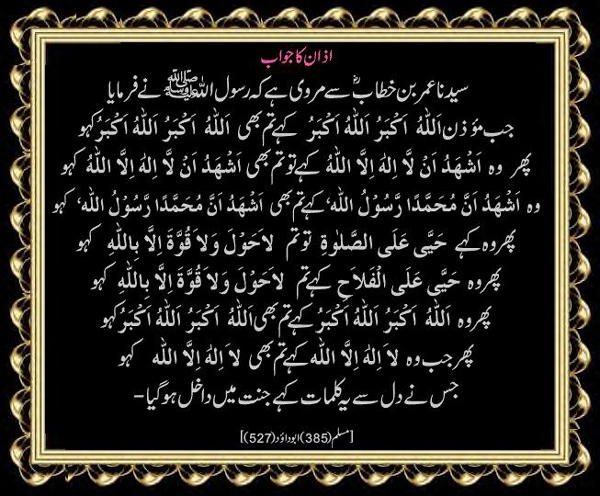 اذان کا جواب
سیدنا عمر بن خطابؓ سے مروی ہے کہ رسول اللہ ﷺ نے فرمایا
جب مؤذن اَللهُ اَکْبَرُ اَللهُ اَکْبَرُ کہے تم بھی اَللهُ اَکْبَرُ اَللهُ اَکْبَرُ کہو
پھر وہ اَشْھَدُ اَنْ لَّا اِلٰهَ اِلَّا اللهُ کہے تو تم بھی اَشْھَدُ اَنْ لَّا اِلٰهَ اِلَّا اللهُ کہو
وہ اَشْھَدُ اَنَّ مُحَمَّدًا رَّسُوْلُ الله، کہے تم بھی اَشْھَدُ اَنَّ مُحَمَّدًا رَّسُوْلُ الله، کہو
پھر وہ کہے حَیَّی عَلَی الصَّلٰوةِ تو تم لاَحَوْلَ وَلاَ قُوَّةَ اِلاَّ بِاللهِ کہو
پھر وہ حَیَّی عَلَی الْفَلاَحِ کہے تم لاَحَوْلَ وَلاَ قُوَّةَ اِلاَّ بِاللهِ کہو
پھر وہ اَللهُ اَکْبَرُ اَللهُ اَکْبَرُ کہے تم بھی اَللهُ اَکْبَرُ اَللهُ اَکْبَرُ کہو
پھر جب وہ لاَ اِلٰهَ اِلاَّ الله کہے تم بھی لاَ اِلٰهَ اِلاَّ الله کہو
جس نے دل سے یہ کلمات کہے جنت میں داخل ہو گیا-
[مسلم(385)ابوداؤد(527)]